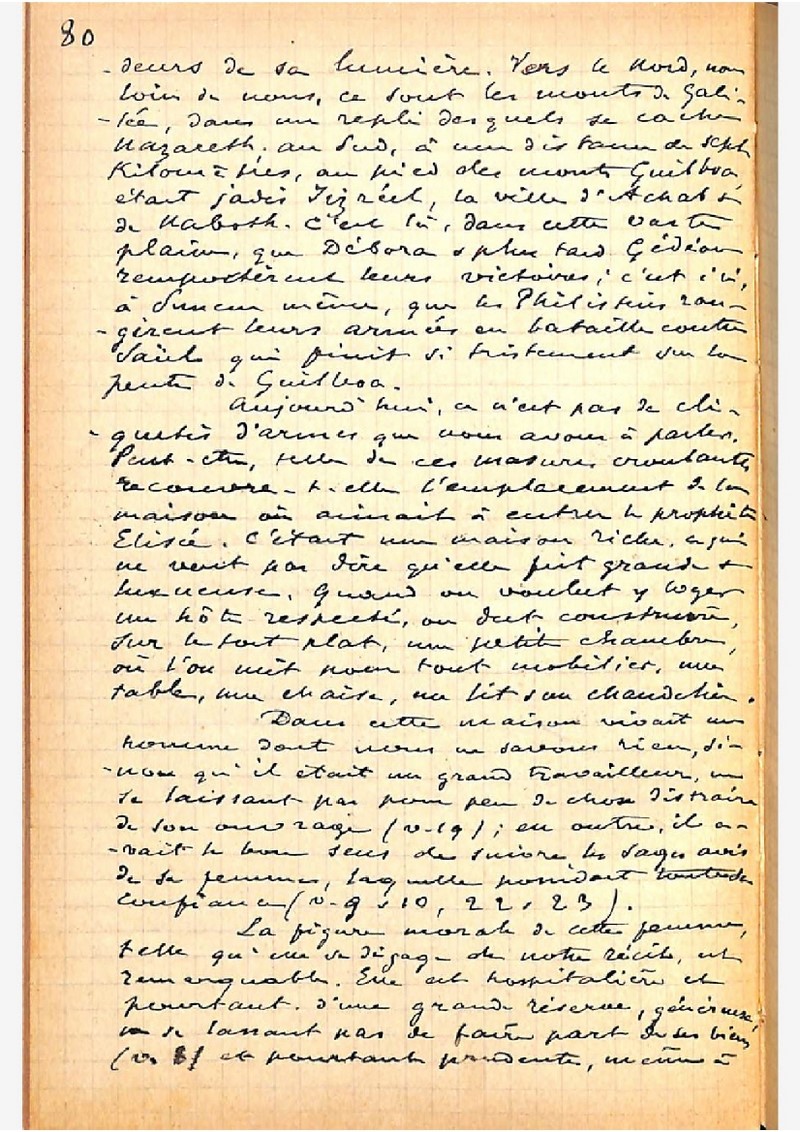 80
-deurs de sa lumière. Vers le Nord, non
loin de nous, ce sont les monts de Gali-
-lée, dans un repli desquels se cache
Nazareth. Au Sud, à une distance de sept
Kilomètres, au pied des monts Guilboa
était jadis Jizréel, la ville d'Achab &
de Naboth. C'est là, dans cette vaste
plaine, que Débora & plus tard Gédéon
remportèrent leurs victoires; c'est ici,
à Sunem même, que les Philistins ran-
-gèrent leurs armées en bataille contre
Saül qui finit si tristement sur la
pente de Guilboa.
Aujourd'hui, ce n'est pas de cli-
-quetis d'armes que nous avons à parler.
Peut-être, telle de ces masures croulantes
recouvre-t-elle l'emplacement de la
maison où aimait à entrer le prophète
Elisée. C'était une maison riche, ce qui
ne veut pas dire qu'elle fût grande &
luxueuse. Quand on voulut y loger
un hôte respecté, on dut construire,
sur le toit plat, une petite chambre,
où l'on mit pour tout mobilier, une
table, une chaise, un lit & un chandelier.
Dans cette maison vivait un
homme dont nous ne savons rien, si-
-non qu'il était un grand travailleur, ne
se laissant pas pour peu de chose distraire
de son ouvrage (v. 19); en outre, il a-
-vait le bon sens de suivre les sages avis
de sa femme, laquelle possédait
confiance (v. 9 & 10, 22 & 23).
La figure morale de cette femme,
telle qu'elle se dégage de notre récit, est
remarquable. Elle est hospitalière et
pourtant d'une grande réserve, généreuse,
ne se lassant pas de faire part de ses biens
(v. 8) et pourtant prudente, même à